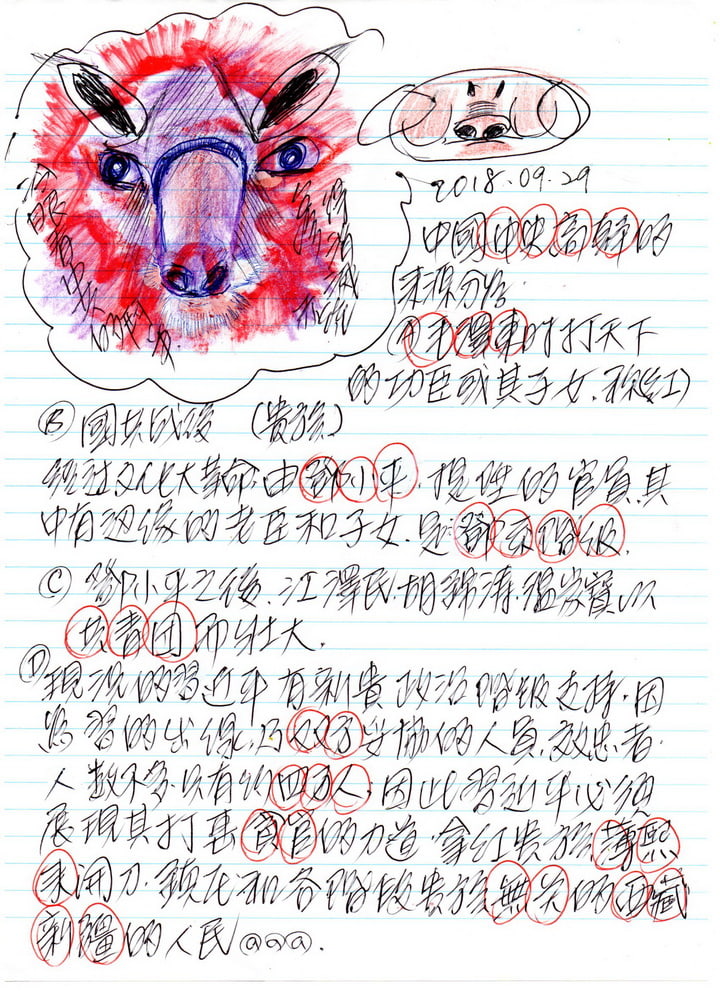 2018.09.29
中國中央高幹的
來源分怡
(A)毛澤東时打天下
的功臣或其子女.称(紅)
(B) 國共戰後 (貴族)
經过文化大革命由鄧小平.提陞的官員.其
中有边缘的老臣和子女.是鄧系階级.
(C) 鄧小平之後.江澤民.胡錦涛.溫家寶以
共青团而壮大.
(D)
現況的習近平有新貴政治階级支持.因
為習的出線.乃双方妥協的人員.效忠者.
人數不多.只有約四万人.因此習近平必須
展現其打击貪官的力道.拿紅貴族薄熙
来開刀.鎮压和各階级貴族無关的西藏
新疆的人民@@@.